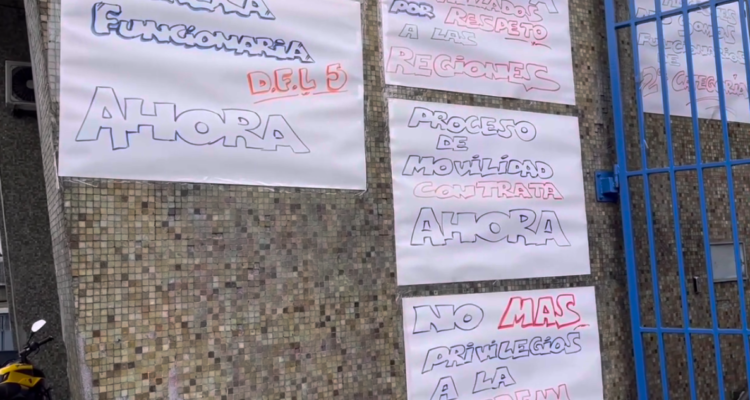 FUNCIONARIA
D.F.L 5
AHORA
POR RESPETO
A LAS
REGIONES
PROCESO
DE
MOVILIDAD
CONTRATA
AHORA
NO MAS
PRIVILEGIOS
A LA
DE
CATEGORIA